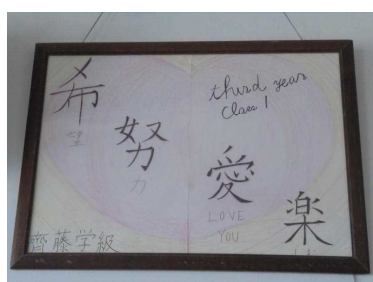 希
望
third year
Class 1
努
力
愛
LOVE
YOU
楽
齊藤学級